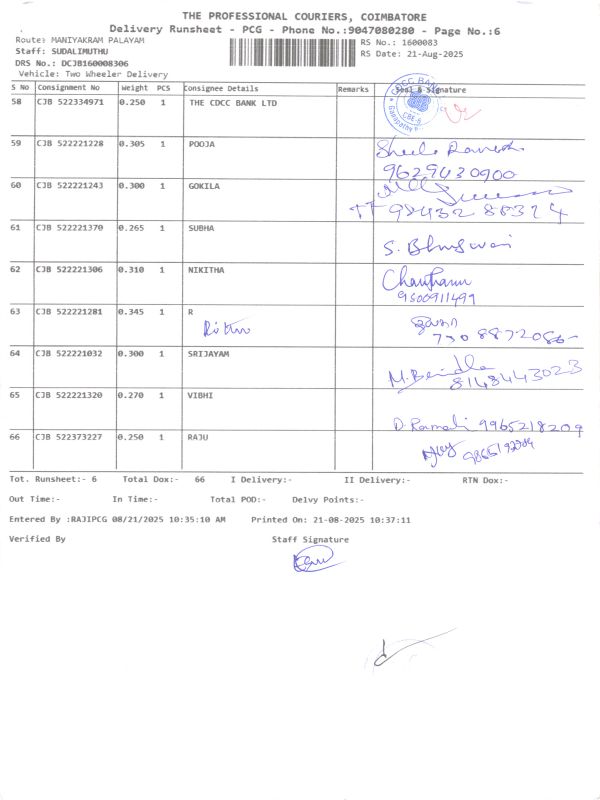 THE PROFESSIONAL COURIERS, COIMBATORE
Delivery Runsheet - PCG - Phone No.:9047080280 - Page No.:6
Route: MANIYAKRAM PALAYAM
RS No.: 1600083
Staff: SUDALIMUTHU
RS Date: 21-Aug-2025
DRS No.: DCJB160008306
Vehicle: Two Wheeler Delivery
S No Consignment No Weight PCS Consignee Details Remarks Seal & Signature
58 CJB 522334971 0.250 1 THE CDCC BANK LTD
CDCC BANK
CBE-6
59 CJB 522221228 0.305 1 POOJA
9629430900
60 CJB 522221243 0.300 1 GOKILA
61 CJB 522221370 0.265 1 SUBHA
62 CJB 522221306 0.310 1 NIKITHA
9500911499
63 CJB 522221281 0.345 1 R
64 CJB 522221032 0.300 1 SRIJAYAM
8148443023
65 CJB 522221320 0.270 1 VIBHI
9965218209
66 CJB 522373227 0.250 1 RAJU
Tot. Runsheet:- 6 Total Dox:- 66 I Delivery:- II Delivery:- RTN Dox:-
Out Time:- In Time:- Total POD:- Delvy Points:-
Entered By :RAJIPCG 08/21/2025 10:35:10 AM Printed On: 21-08-2025 10:37:11
Verified By Staff Signature